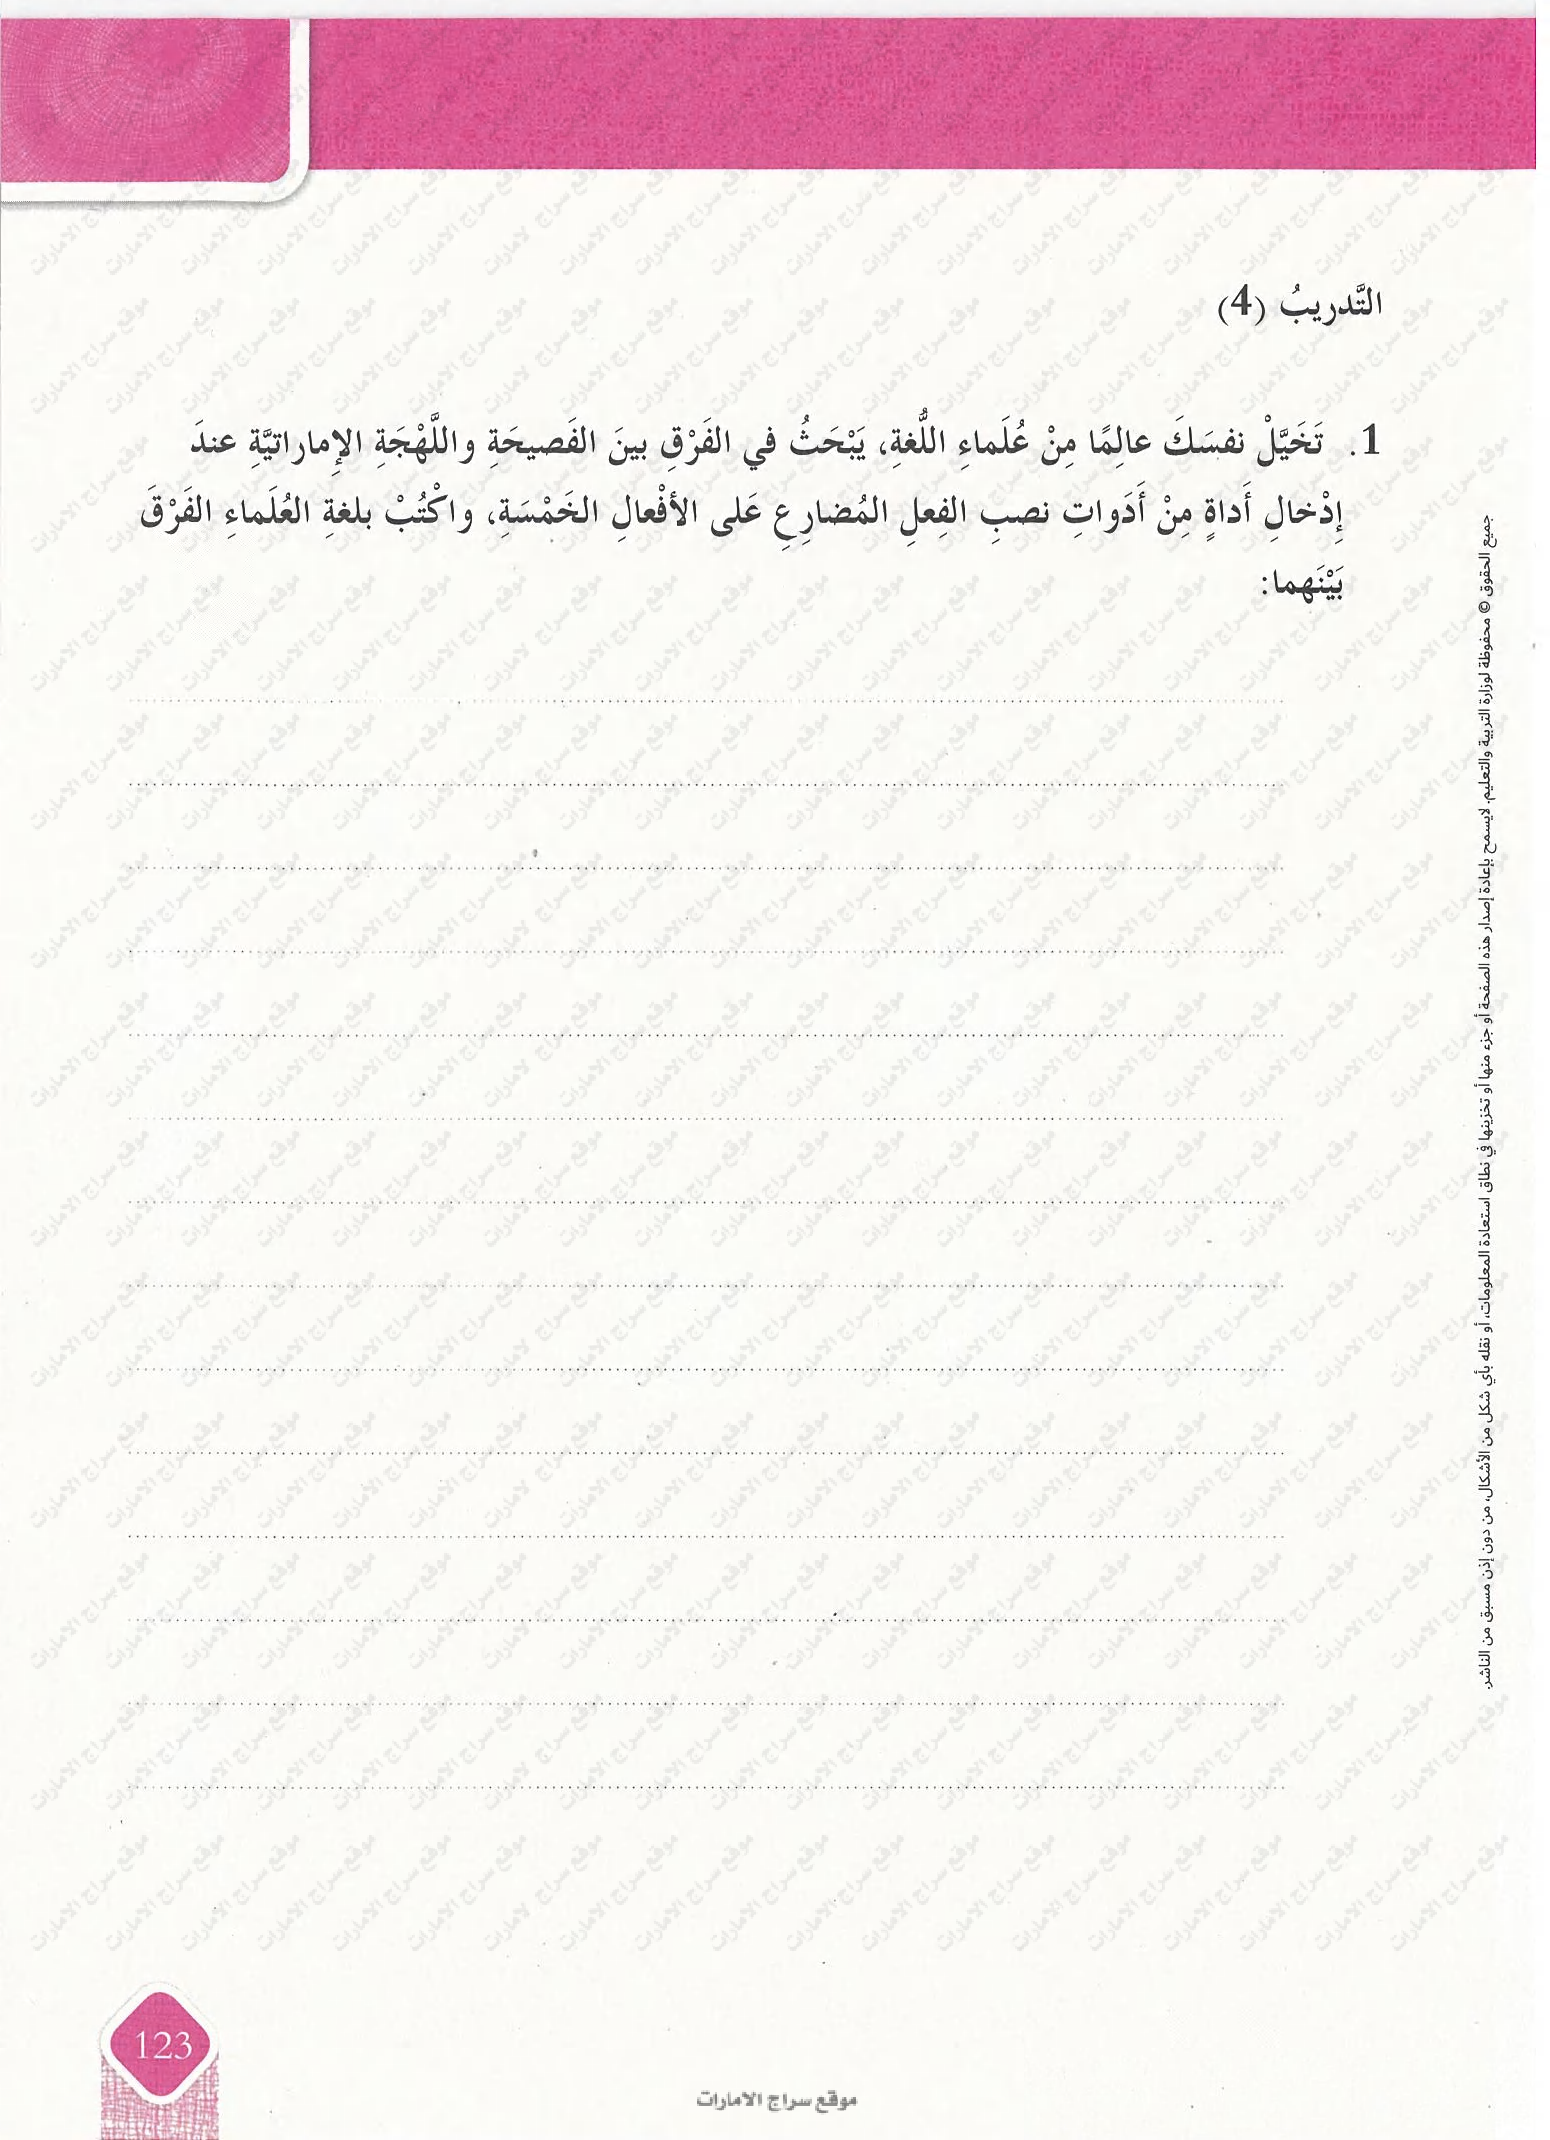 التَّدريبُ (4)
1. تَخَيَّلْ نفسَكَ عالِمًا مِنْ عُلَماءِ اللُّغةِ، يَبْحَثُ في الفَرْقِ بينَ الفَصيحَةِ واللَّهْجَةِ الإِماراتيَّةِ عندَ
إِدْخالِ أَداةٍ مِنْ أَدَواتِ نصبِ الفِعلِ المُضارِعِ عَلى الأفْعالِ الخَمْسَةِ، واكْتُبْ بلغةِ العُلَماءِ الفَرْقَ
بَيْنَهما:
جميع الحقوق © محفوظة لوزارة التربية والتعليم. لايسمح بإعادة إصدار هذه الصفحة أو جزء منها أو تخزينها في نطاق استعادة المعلومات، أو نقله بأي شكل من الأشكال، من دون إذن مسبق من الناشر.
123
موقع سراج الامارات